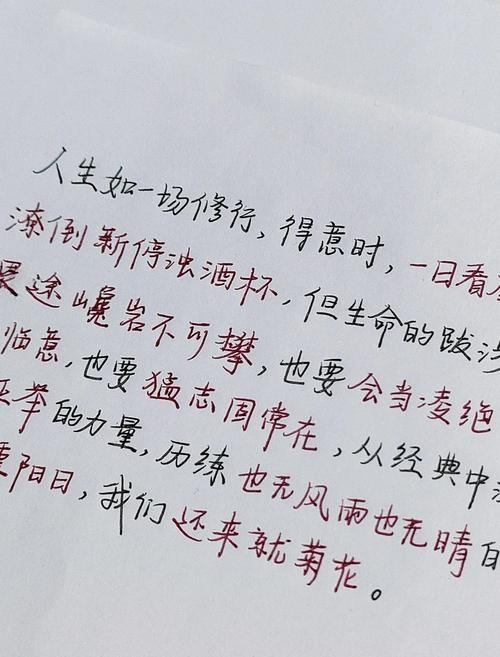 人生如一场修行,得意时,一日看
潦倒新停浊酒杯,但生命的跋涉
途巉岩不可攀,也要会当凌绝
临意,也要猛志固常在,从经典中
举的力量,历练也无风雨也无晴
阳日,我们还来就菊花。